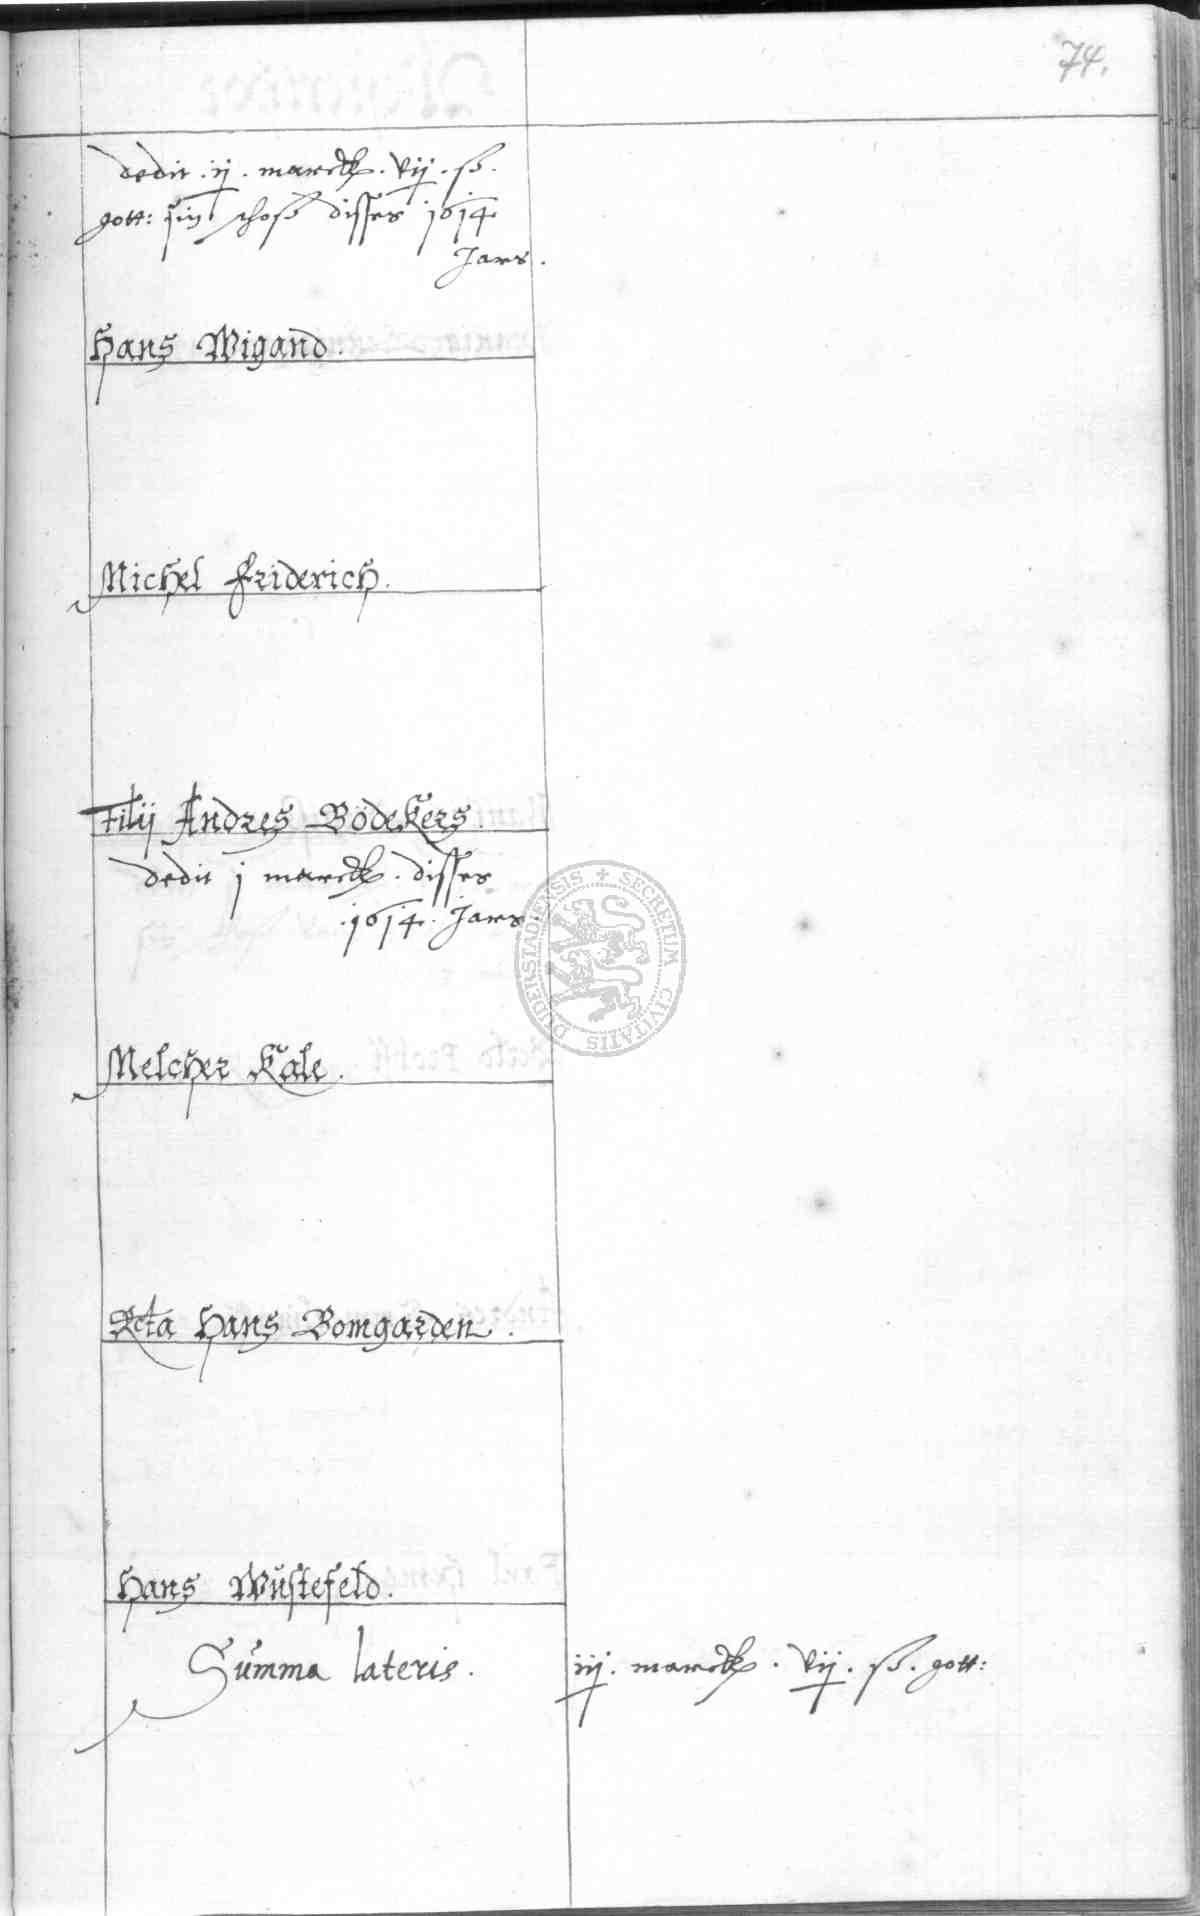 74.
dedit . ij . marck . vij . ß .
gott: sin schoß disses 1614
Jars .
Hans Wigand .
Michel Friderich .
Filij Andres Bödekers .
dedit j marck . disses
. 1614 . Jars .
Melcher Kale .
Rcta Hans Bomgarden .
Hans Wüstefeld .
Summa lateris . iij . marck . vij . ß . gott:
SECRETUM CIVITATIS DUDERSTADENSIS